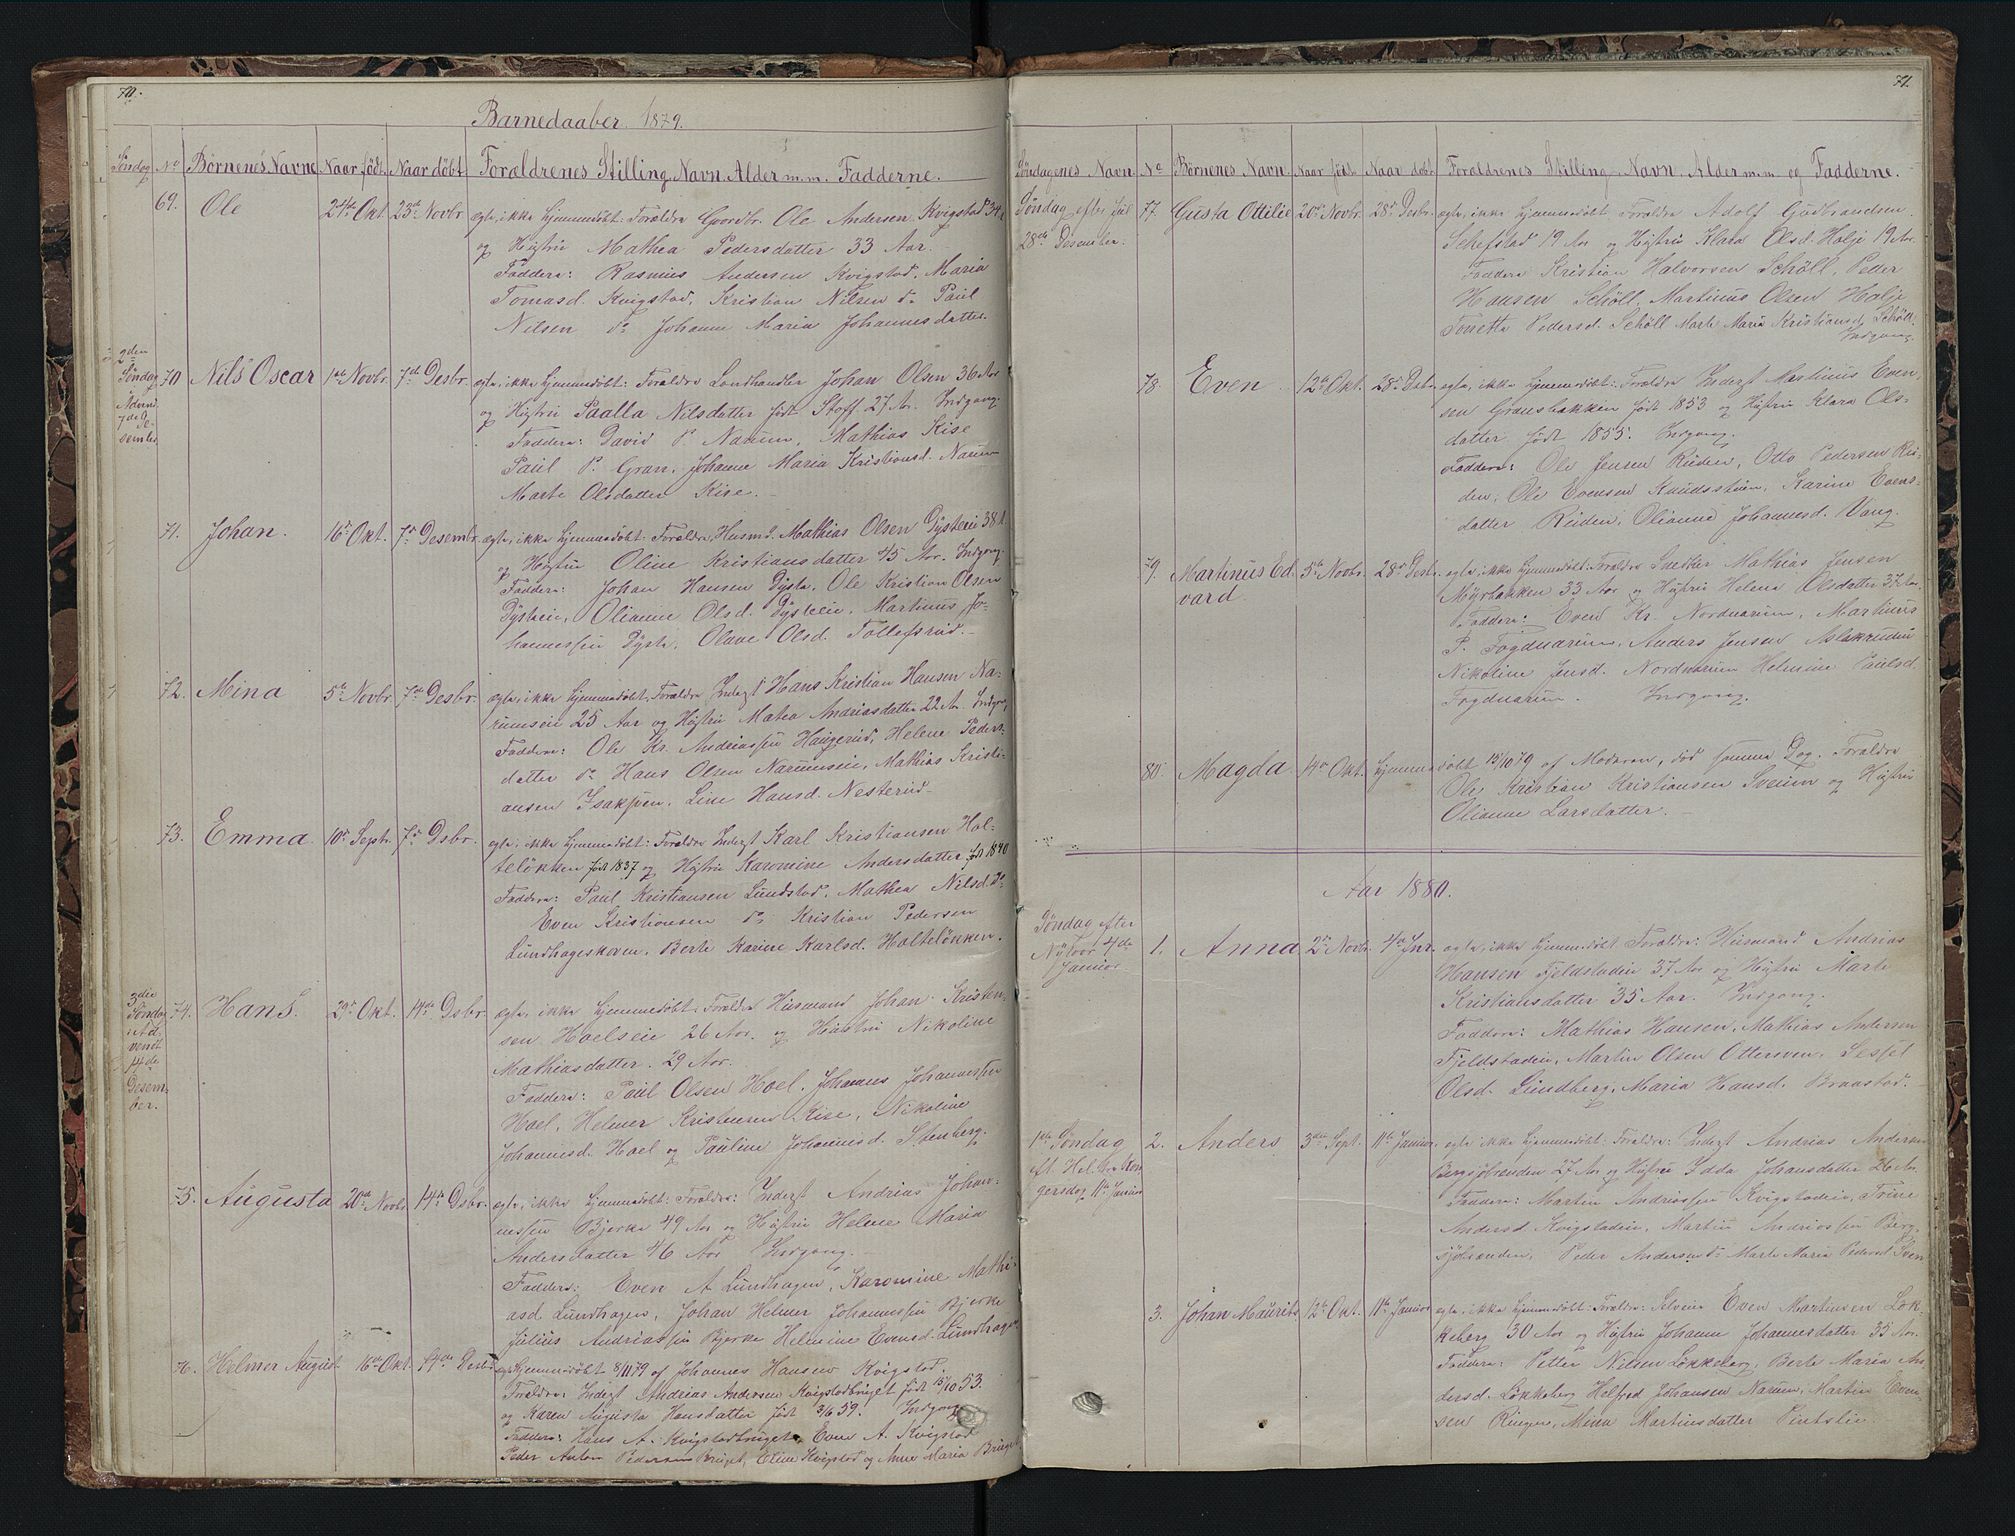 70.
Barnedaaber 1879.
Søndag No Børnenes Navne Naar født Naar döbt Forældrenes Stilling, Navn, Alder m.m. Fadderne.
69. Ole 24de Okt. 23de Novbr. ægte, ikke hjemmedøbt: Forældre Gaardbr. Ole Andersen Kvigstad 34 A
og Hustru Mathea Pedersdatter 33 Aar.
Faddere: Rasmus Andersen Kvigstad, Maria
Tomasd. Kvigstad, Kristian Nilsen do Paul
Nilsen do Johanne Maria Johannesdatter.
2den Søndag Advend 7de Desember
70 Nils Oscar 1ste Novbr. 7de Desbr. ægte, ikke hjemmedøbt: Forældre Landhandler Johan Olsen 36 Aar
og Hustru Paalla Nilsdatter født Stoff 27 Ar. Indgang.
Faddere: David P. Narum, Mathias Kise
Paul P. Gran, Johanne Maria Kristiansd. Narum
Marte Olsdatter Kise.
71. Johan. 16de Okt. 7de Desembr. ægte, ikke hjemmedøbt Forældre, Husmd. Mathias Olsen Dysteeie 38 A.
og Hustru Oline Kristiansdatter 45 Aar. Indgang.
Faddere: Johan Hansen Dyste, Ole Kristian Olsen
Dysteeie, Olianne Olsd. Dysteeie, Martinus Jo-
hannessen Dyste, Olave Olsd. Tollefsrud.
72. Mina 5te Novbr. 7de Desbr. ægte, ikke hjemmedøbt, Forældre Inderst Hans Kristian Hansen Na-
rumseie 25 Aar og Hustru Matea Andriasdatter 22 Ar. Indgang,
Faddere: Ole Kr. Andriassen Haugerud, Helene Peders-
datter do Hans Olsen Narumseie, Mathias Kristi-
ansen Isaksen, Line Hansd. Nesterud
73. Emma. 10de Septr. 7de Dsbr. ægte, ikke hjemmedøbt: Forældre Inderst Karl Kristiansen Hol-
teløkken født 1837 og Hustru Karomine Andersdatter født 1840
Faddere: Paul Kristiansen Lundstad, Mathea Nilsd. Do
Even Kristiansen do, Kristian Pedersen
Lundhageskoven, Berte Karine Karlsd. Holteløkken.
3die Søndag i Advendt 14de Desember.
74. Hans. 29de Okt. 14de Dsbr. ægte, ikke hjemmedøbt: Forældre Husmand Johan Kristen-
sen Hoelseie 26 Aar. og Hustru Nikoline
Mathiasdatter. 29 Aar.
Faddere: Paul Olsen Hoel, Johannes Johannessen
Hoel, Helmer Kristensen Kise, Nikoline
Johannesd. Hoel og Pauline Johannesd. Stenberg.
75. Augusta 20de Novbr 14de Dsbr. ægte, ikke hjemmedøbt: Forældre: Inderst Andrias Johan-
nessen Bjerke 49 Aar og Hustru Helene Maria
Andersdatter 46 Aar Indgang.
Faddere: Even A. Lundhagen, Karomine Mathi-
asd. Lundhagen, Johan Helmer Johannessen Bjerke
Julius Andriassen Bjerke Helmine Evensd. Lundhagen
76. Helmer August 16de Okt. 14de Desbr. ægte, hjemmedøbt 8/11 79 af Johannes Hansen Kvigstad.
Forældre: Inderst Andrias Andersen Kvigstadbruget født 15/10 53.
og Karen Augusta Hansdatter født 3/6 59. Indgang
Faddere: Hans A. Kvigstadbruget, Even A. Kvigstad
Peder Anton Pedersen Bruget, Eline Kvigstad og Anne Maria Bruget
71.
Søndagenes Navn No Børnenes Navn Naar født Naar døbt Forældrenes Stilling, Navn, Alder m.m. og Fadderne.
Søndag efter Jul 28de Desember.
77. Gusta Ottilie 20de Novbr. 28de Desbr. ægte, ikke hjemmedøbt, Forældre Adolf Gudbrandsen
Sehefstad 19 Ar og Hustru Klara Olsd. Holje 19 Ar.
Faddere Kristian Halvorsen Schöll, Peder
Hansen Schöll, Martinus Olsen Holje
Tonette Pedersd. Schöll Marte Maria Kristiansd. Schöll.
Indgang.
78. Even 12te Okt. 28de Dsbr. ægte, ikke hjemmedøbt: Forældre Inderst Martinus Even-
sen Gransbakken født 1853 og Hustru Klara Ols-
datter født 1855. Indgang.
Faddere: Ole Jensen Ruden, Otto Pedersen Ru-
den, Ole Evensen Knudsstuen, Karine Evens-
datter Ruden, Olianne Johannesd. Vang.
79. Martinus Ed- vard 5te Novbr. 28de Desbr. ægte, ikke hjemmedøbt: Forældre Snedker Mathias Jensen
Myrbakken 33 Aar og Hustru Helena Olsdatter 37 Aar
Faddere: Even Kr. Nordnarum, Martinus
P. Fogdnarum, Anders Jensen Aslakrudeie
Nikoline Jensd. Nordnarum Helmine Paulsd.
Fogdnarum. Indgang.
80. Magda 14de Okt. hjemmedøbt 15/10 79 af Moderen, død samme Dag. Forældre
Ole Kristian Kristiansen Sveum og Hustru
Olianne Larsdatter.
Aar 1880.
Søndag efter Nytaar 4de Januar
1. Anna 2den Novbr. 4de Jnr. ægte, ikke hjemmedøbt Forældre: Husmand Andrias
Hansen Fjeldstadeie 37 Aar og Hustru Marte
Kristiansdatter 35 Aar. Indgang.
Faddere: Mathias Hansen, Mathias Andersen
Fjeldstadeie, Martin Olsen Ottersven, Lesset
Olsd. Lundberg, Maria Hansd. Braastad.
1ste Søndag ef. Hel. tre Kongersdag 11te Januar
2. Anders 3die Sept. 11te Januar. ægte ikke hjemmedøbt: Forældre: Inderst Andrias Andersen
Bergsjöbranden 27 Aar og Hustru Idda Johansdatter 26 Ar.
Faddere: Martin Andriassen Kvigstadeie, Trine
Andersd. Kvigstadeie, Martin Andriassen Berg-
sjöbranden, Peder Andersen do Marte Maria Pedersd. Sven
3. Johan Maurits 12te Okt. 11te Januar ægte, ikke hjemmedøbt: Forældre: Selveier Even Martinsen Løk-
keberg 30 Aar og Hustru Johanne Johannesdatter 35 Aar.
Faddere: Petter Nilsen Løkkeberg, Berte Maria An-
dersd. Løkkeberg Halfred Johansen Narum, Martin Even-
sen Ringen, Mina Martinsdatter Pintslie.